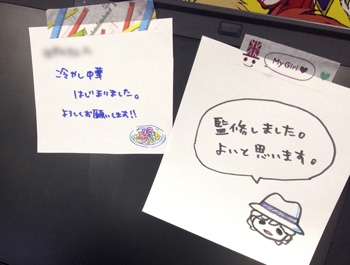 冷やし中華
はじまりました。
よろしくお願いします!!
My Girl
監修しました。
よいと思います。